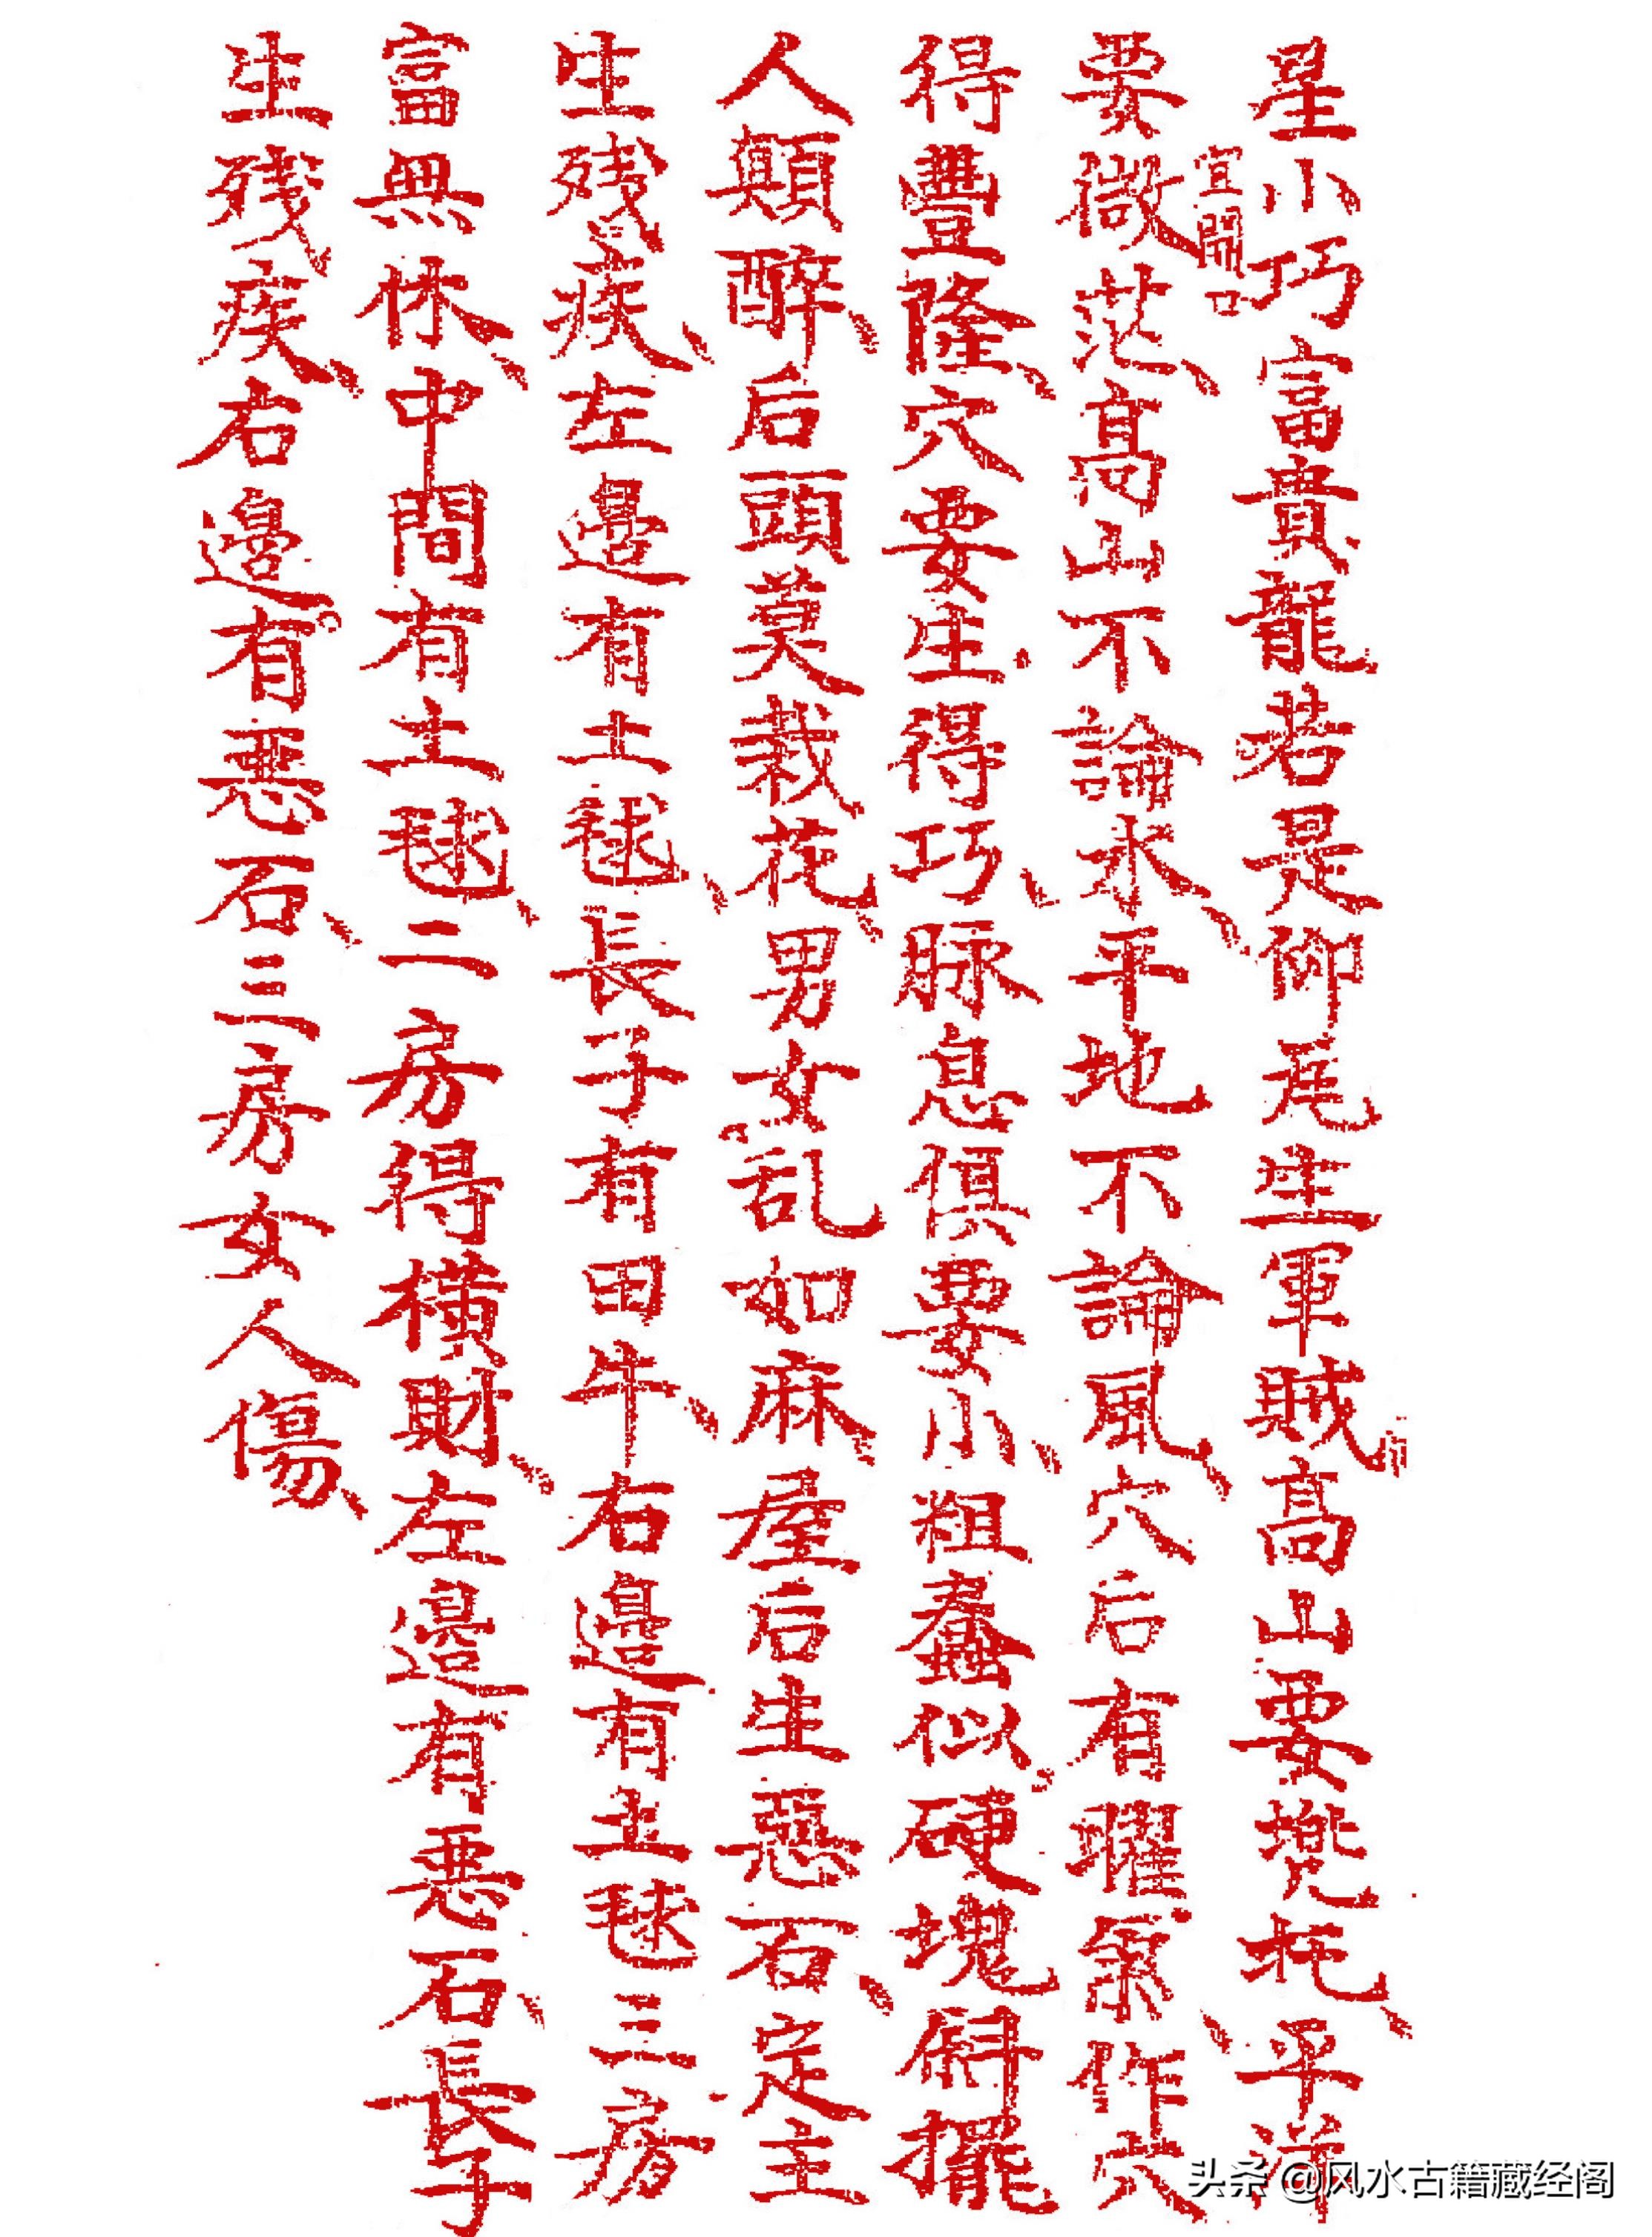 星小巧富貴龍若是仰尾生軍賊高山要㙮扦平洋
宜開口
要微茫高山不論水平地不論風穴后有曜氣作穴
得豐隆穴要生得巧脉息俱要小粗蠢似硬塊斜擺
人顛醉后頭莫栽花男女乱如麻屋后生惡石定主
生残疾左邊有土毬長子有田牛右邊有土毬三房
富無休中間有土毬二房得橫財左邊有悪石長子
生残疾右邊有悪石三房女人傷
头条 @风水古籍藏经阁